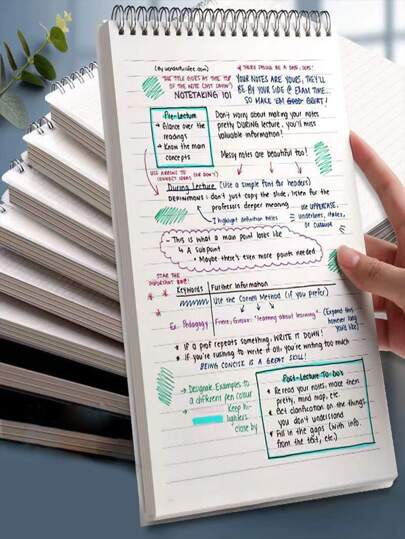 (By wonderfulife.com)
* THERE SHOULD BE A DATE, ALSO!
THE TITLE GOES AT THE TOP
OF THE NOTE (JUST SAYIN')
NOTETAKING 101
YOUR NOTES ARE YOURS, THEY'LL
BE BY YOUR SIDE @ EXAM TIME...
SO MAKE 'EM GOOD GREAT!
Pre-Lecture
→ Glance over the
readings
→ Know the main
concepts
Don't worry about making your notes
pretty DURING lecture, you'll miss
valuable information!
Messy notes are beautiful too!
USE ARROWS TO
CONNECT IDEAS (OR DON'T)
During Lecture (Use a simple font for headers)
DEFINITIONS: don't just copy the slide, listen for the
professors deeper meaning
I highlight definition titles
use UPPERCASE,
underlines, italics,
or CURSIVE
- This is what a main point looks like
↳ A Subpoint
• Maybe there's even more points needed
STAR THE
IMPORTANT
Keywords | Further Information
Use the Cornell Method (if you prefer)
Ex. Pedagogy
"learning about learning"
(Expand this
however long
you'd like)
* IF a prof repeats something, WRITE IT DOWN!
* IF you're rushing to write it all, you're writing too much
BEING CONCISE IS A GREAT SKILL!
→ Designate Examples to
a different pen colour
→ Keep hi-
lighters
close by
Post-Lecture To-Do's
★ Re read your notes, make them
pretty, mind map, etc.
★ Get clarification on the things
you don't understand
★ Fill in the gaps (with info.
from the text, etc.)